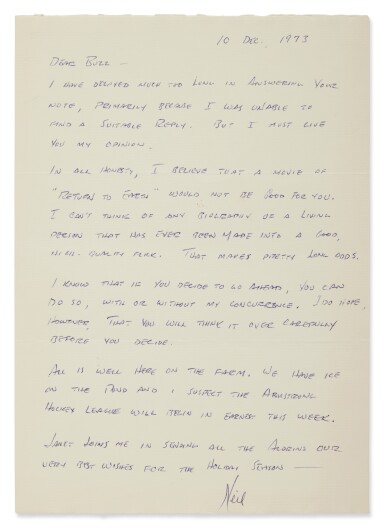 10 Dec, 1973
Dear Buzz —
I have delayed much too long in answering your
note, primarily because I was unable to
find a suitable reply. But I must give
you my opinion.
In all honesty, I believe that a movie of
"Return to Earth" would not be good for you.
I can't think of any biography of a living
person that has ever been made into a good,
high quality flick. That makes pretty long odds.
I know that if you decide to go ahead, you can
do so, with or without my concurrence. I do hope,
however, that you will think it over carefully
before you decide.
All is well here on the farm. We have ice
on the pond and I suspect the Armstrong
Hockey League will begin in earnest this week.
Janet joins me in sending all the Aldrins our
very best wishes for the Holiday Season —
Neil